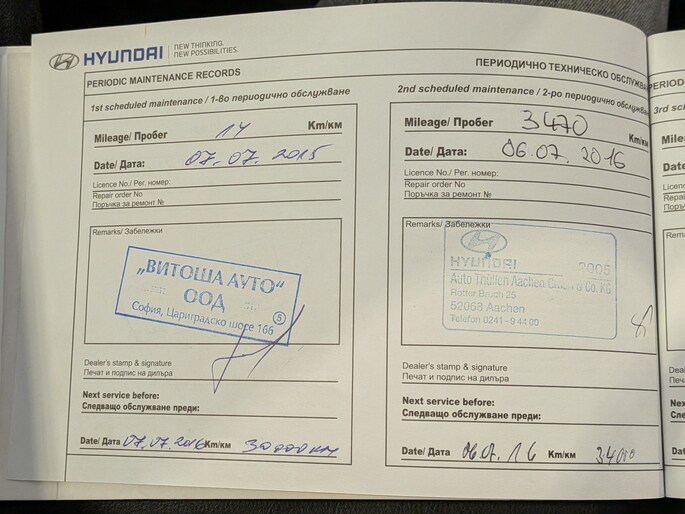 HYUNDAI
NEW THINKING.
NEW POSSIBILITIES.
PERIODIC MAINTENANCE RECORDS
1st scheduled maintenance / 1-во периодично обслужване
Mileage/ Пробег 14 Km/км
Date/ Дата: 07.07.2015
Licence No./ Рег. номер:
Repair order No
Поръчка за ремонт №
Remarks/ Забележки
„ВИТОША АУТО“
ООД
София, Цариградско шосе 166
5
Dealer's stamp & signature
Печат и подпис на дилъра
Next service before:
Следващо обслужване преди:
Date/ Дата 07.07.2016 Km/км 30000 км
ПЕРИОДИЧНО ТЕХНИЧЕСКО ОБСЛУЖВА
2nd scheduled maintenance / 2-ро периодично обслужване
Mileage/ Пробег 3470 Km/км
Date/ Дата: 06.07.2016
Licence No./ Рег. номер:
Repair order No
Поръчка за ремонт №
Remarks/ Забележки
HYUNDAI 2005
Auto Thüllen Aachen Co. KG
Rotter Bruch 25
52068 Aachen
Telefon 0241-9 44 00
Dealer's stamp & signature
Печат и подпис на дилъра
Next service before:
Следващо обслужване преди:
Date/ Дата 06.07.16 Km/км
ПЕРИОД
3rd sche